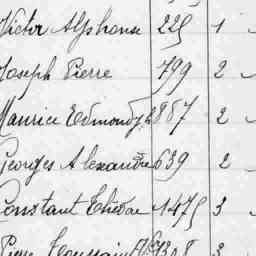 Victor Alphonse 225 1
Joseph Pierre 799 2
Maurice Edmond 867 2
Georges Alexandre 639 2
Constant 1475 3
Pierre Toussaint 1308 3